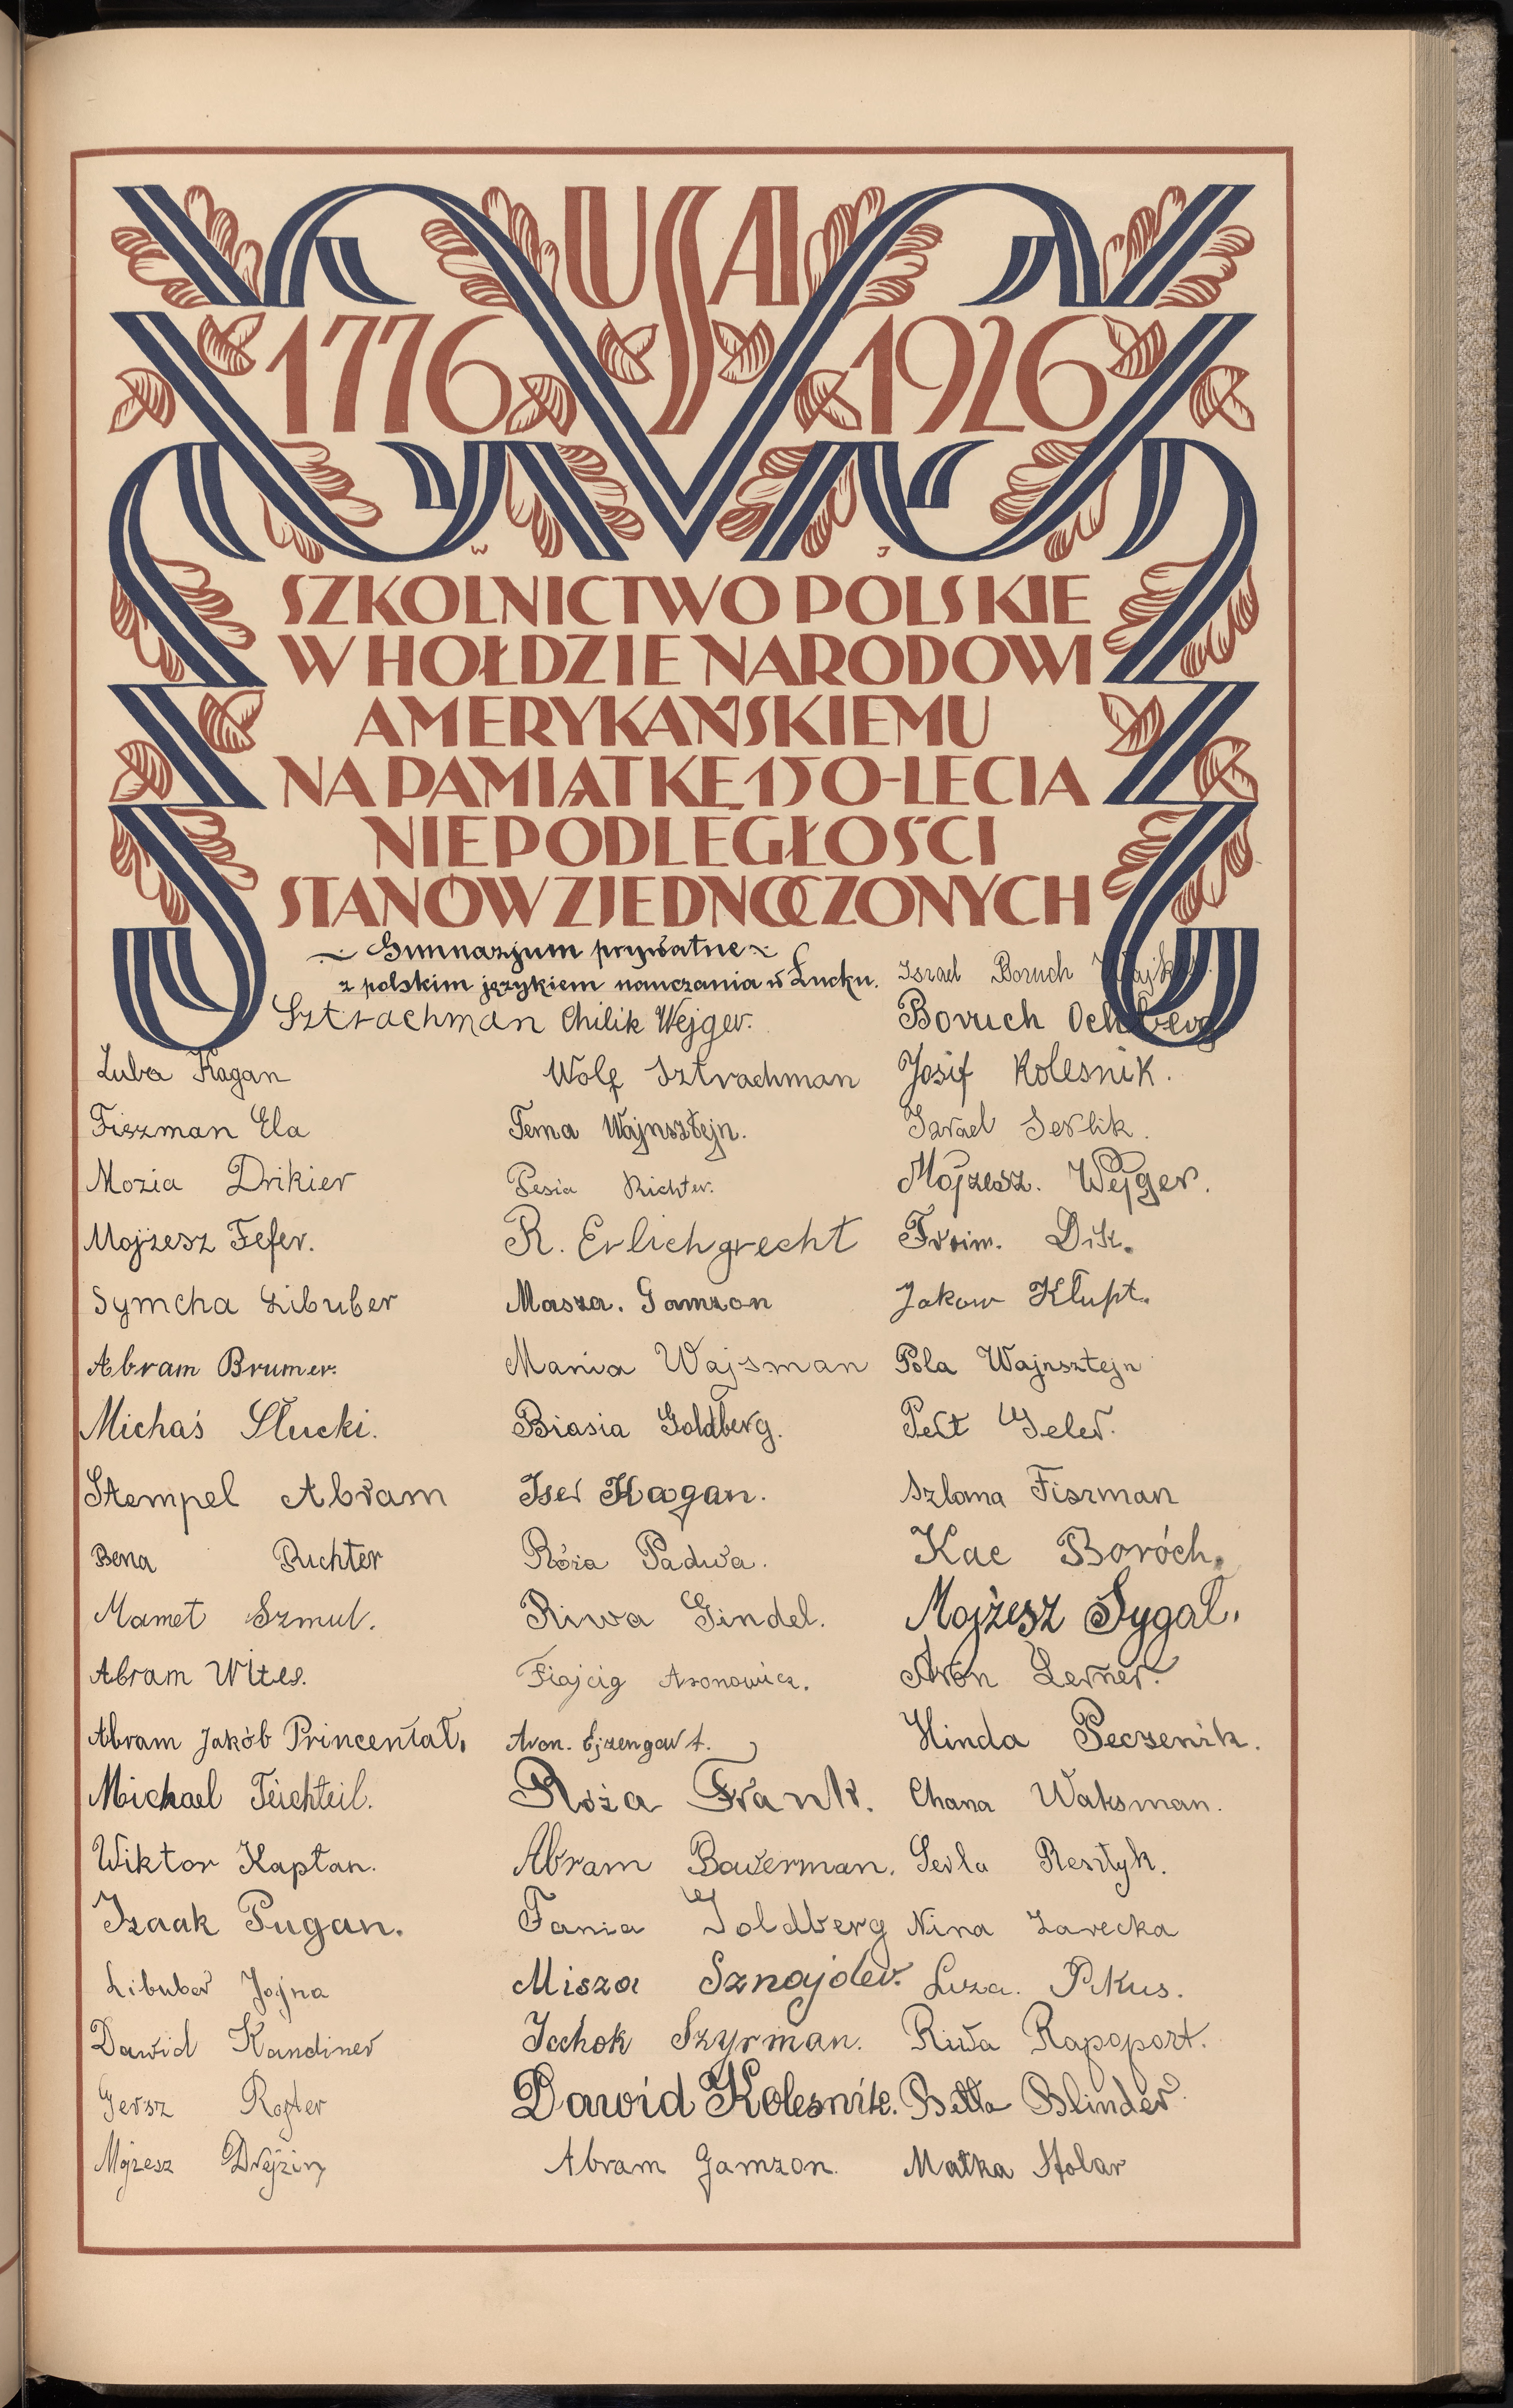 USA
1776 1926
W J
SZKOLNICTWO POLSKIE
W HOŁDZIE NARODOWI
AMERYKAŃSKIEMU
NA PAMIĄTKĘ 150-LECIA
NIEPODLEGŁOŚCI
STANÓW ZJEDNOCZONYCH
Gimnazjum prywatne
z polskim językiem nauczania w Łucku.
Sztrachman Chilik Wejger.
Luba Kagan
Fiszman Ela
Mozia Drikier
Mojżesz Fefer.
Symcha Libuber
Abram Brumer.
Michaś Słucki.
Stempel Abram
Bena Richter
Mamet Szmul.
Abram Wites.
Abram Jakób Princental.
Michael Teichteil.
Wiktor Kapłan.
Izaak Pugan.
Libuber Jojna
Dawid Kandiner
Gersz Rojter
Mojzesz
Wolf Sztrachman
Tema Wajnsztejn.
Pesia Richter.
R. Erlichgrecht
Masza. Gamzon
Mania Wajsman
Biasia Goldberg.
Iser Kagan.
Róża Padwa.
Riwa Gindel.
Aronowicz.
Aron. Ejzengart.
Róża Frank.
Abram Bawerman.
Fania Goldberg
Misza Sznajder.
Icchok Szyrman.
Dawid Kolesnik.
Abram Gamzon.
Israel Boruch
Boruch Ochberg
Josif Kolesnik.
Israel Serlik.
Mojżesz. Wejger.
Froim. Dik.
Jakow Klupt.
Pola Wajnsztejn
Perl Geler.
Szloma Fiszman
Kac Boróch.
Mojżesz Sygał.
Aron Lerner.
Hinda Peczenik.
Chana Waksman.
Serla Resztyk.
Nina Zarecka
Luza. Pikus.
Riwa Rapoport.
Betta Blinder
Małka Stolar